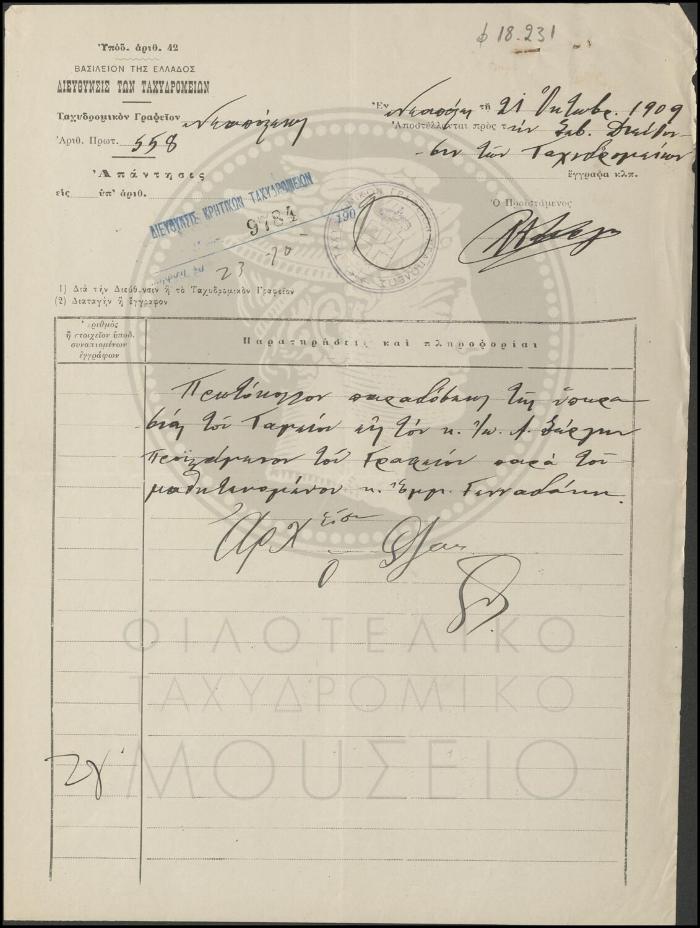 φ 18.231
Ὑπόδ. ἀριθ. 42
ΒΑΣΙΛΕΙΟΝ ΤΗΣ ΕΛΛΑΔΟΣ
ΔΙΕΥΘΥΝΣΙΣ ΤΩΝ ΤΑΧΥΔΡΟΜΕΙΩΝ
Ταχυδρομικὸν Γραφεῖον Νεαπόλεως
Ἀριθ. Πρωτ. 558
Ἀπάντησις
εἰς ὑπ' ἀριθ.
Ἐν Νεαπόλει τῇ 21 Ὀκτωβρ. 1909
Ἀποστέλλονται πρὸς τὴν Σεβ. Διεύθυν-
σιν τῶν Ταχυδρομείων
ἔγγραφα κλπ.
Ὁ Προϊστάμενος
ΔΙΕΥΘΥΝΣΙΣ ΚΡΗΤΙΚΩΝ ΤΑΧΥΔΡΟΜΕΙΩΝ
9784
190
23 10
1) Διὰ τὴν Διεύθυνσιν ἢ τὸ Ταχυδρομικὸν Γραφεῖον
(2) Διαταγὴν ἢ ἔγγραφον
Ἀριθμὸς
ἢ στοιχεῖον ὑποδ.
συναπτομένων
ἐγγράφων
Παρατηρήσεις καὶ πληροφορίαι
Πρωτόκολλον παραδόσεως τῆς ὑπηρε
σίας τοῦ Ταμείου εἰς τὸν κ.
προϊστάμενον τοῦ Γραφείου παρὰ τοῦ
μαθητευομένου κ. Ἐμμ. Γενναδάκη.
Ἀρχ
ΦΙΛΟΤΕΛΙΚΟ
ΤΑΧΥΔΡΟΜΙΚΟ
ΜΟΥΣΕΙΟ